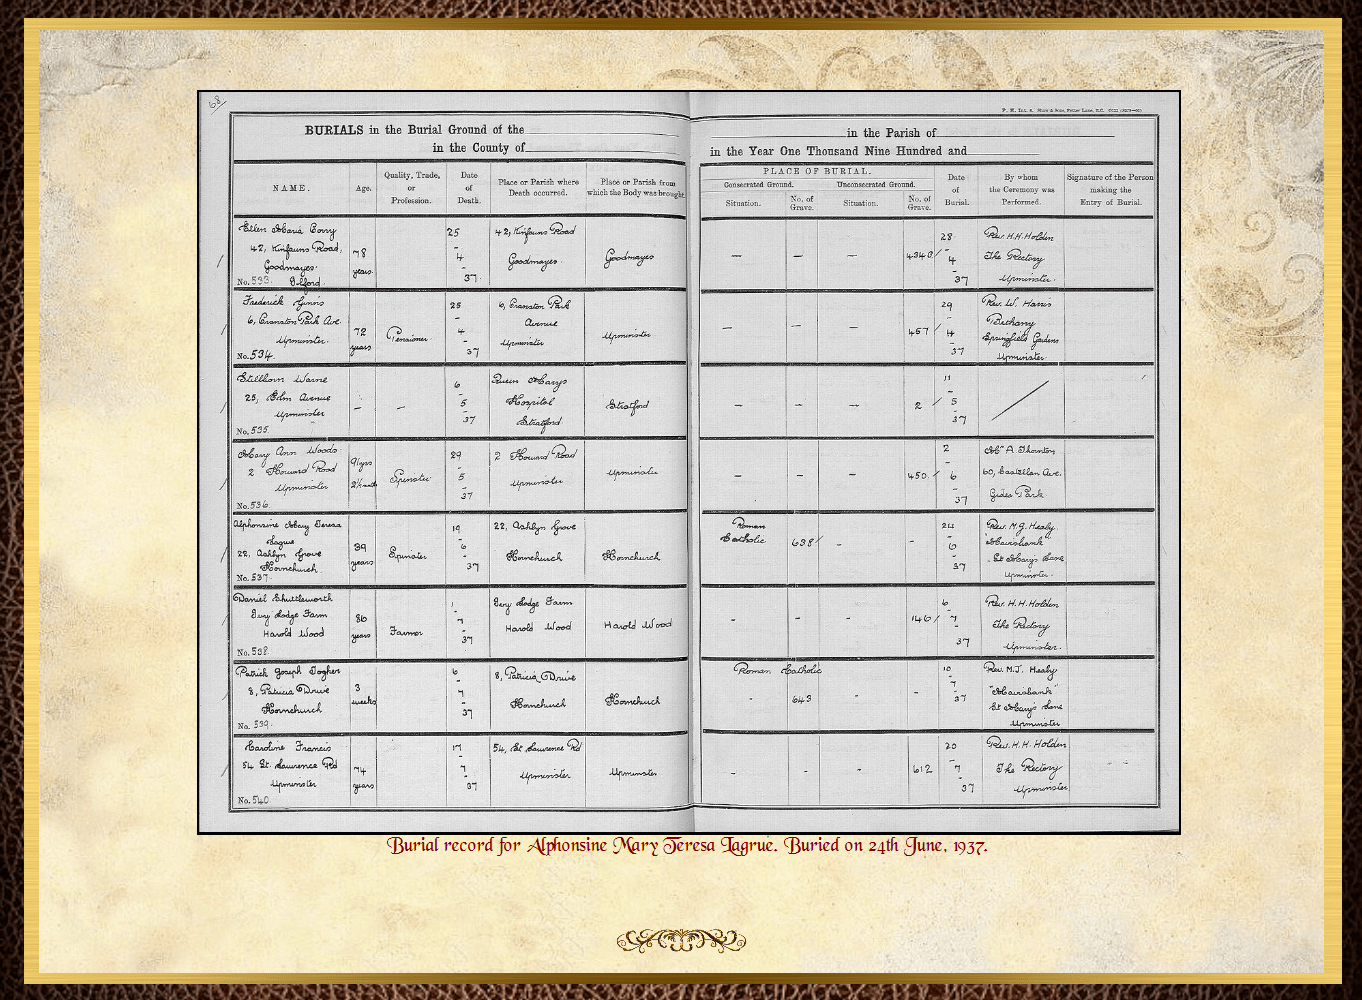 68
P. M. Ltd. 8.
BURIALS in the Burial Ground of the
in the County of
in the Parish of
in the Year One Thousand Nine Hundred and
NAME.
Age.
Quality, Trade, or Profession.
Date of Death.
Place or Parish where Death occurred.
Place or Parish from which the Body was brought.
PLACE OF BURIAL.
Consecrated Ground.
Unconsecrated Ground.
Situation.
No. of Grave.
Situation.
No. of Grave.
Date of Burial.
By whom the Ceremony was Performed.
Signature of the Person making the Entry of Burial.
Ellen Maria Corry
42, Kinfauns Road,
Goodmayes.
Ilford
No. 533.
78 years
25 - 4 - 37.
42, Kinfauns Road
Goodmayes.
Goodmayes
— — — 4340/
28 - 4 - 37
Rev. H.H. Holden
The Rectory
Upminster.
Frederick Ginns
6, Cranston Park Ave.
Upminster.
No. 534.
72 years
Pensioner.
25 - 4 - 37
6, Cranston Park
Avenue
Upminster
Upminster
— — — 457 /
29 - 4 - 37
Rev. W. Harris
Bethany
Springfield Gardens
Upminster.
Stillborn Warne
25, Elm Avenue
Upminster
No. 535.
— —
6 - 5 - 37
Queen Marys
Hospital
Stratford
Stratford
— — — 2 /
11 - 5 - 37
Mary Ann Woods
2 Howard Road
Upminster
No. 536.
91 yrs
Spinster
29 - 5 - 37
2 Howard Road
Upminster
Upminster
— — — 450.
2 - 6 - 37
Mr A. Thornton
60, Castellan Ave.
Gidea Park
Alphonsine Mary Teresa
Lagrue
22, Ashlyn Grove
Hornchurch
No. 537.
39 years
Spinster
19 - 6 - 37
22, Ashlyn Grove
Hornchurch
Hornchurch
Roman Catholic
638/ - -
24 - 6 - 37
Rev. M.J. Healy.
"Mairsbank"
St Mary's Lane
Upminster.
Daniel Shuttleworth
Ivy Lodge Farm
Harold Wood
No. 538.
86 years
Farmer
1 - 7 - 37
Ivy Lodge Farm
Harold Wood
Harold Wood
- - - 146 /
6 - 7 - 37
Rev. H.H. Holden
The Rectory
Upminster.
Patrick Joseph Togher
8, Patricia Drive
Hornchurch
No. 539.
3 weeks
6 - 7 - 37
8, Patricia Drive
Hornchurch
Hornchurch
Roman Catholic
- 643 - -
10 - 7 - 37
Rev. M.J. Healy
"Mairsbank"
St Mary's Lane
Upminster
Caroline Francis
54 St. Lawrence Rd
Upminster
No. 540
74 years
17 - 7 - 37
54, St Lawrence Rd
Upminster
Upminster
- - - 612
20 - 7 - 37
Rev. H.H. Holden
The Rectory
Upminster
Burial record for Alphonsine Mary Teresa Lagrue. Buried on 24th June, 1937.